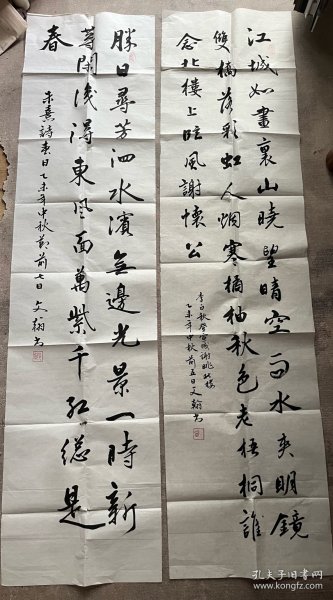 江城如畫裏山曉望晴空两水夾明鏡
雙橋落彩虹人烟寒橘柚秋色老梧桐誰
念北樓上临風謝懷公
李白秋登宣城謝眺北楼
乙未年中秋前五日文翰书
勝日尋芳泗水濱无邊光景一時新
等閑浅得東風面萬紫千紅總是
春
朱熹詩春日乙未年中秋节前七日文翰书
孔夫子旧书网